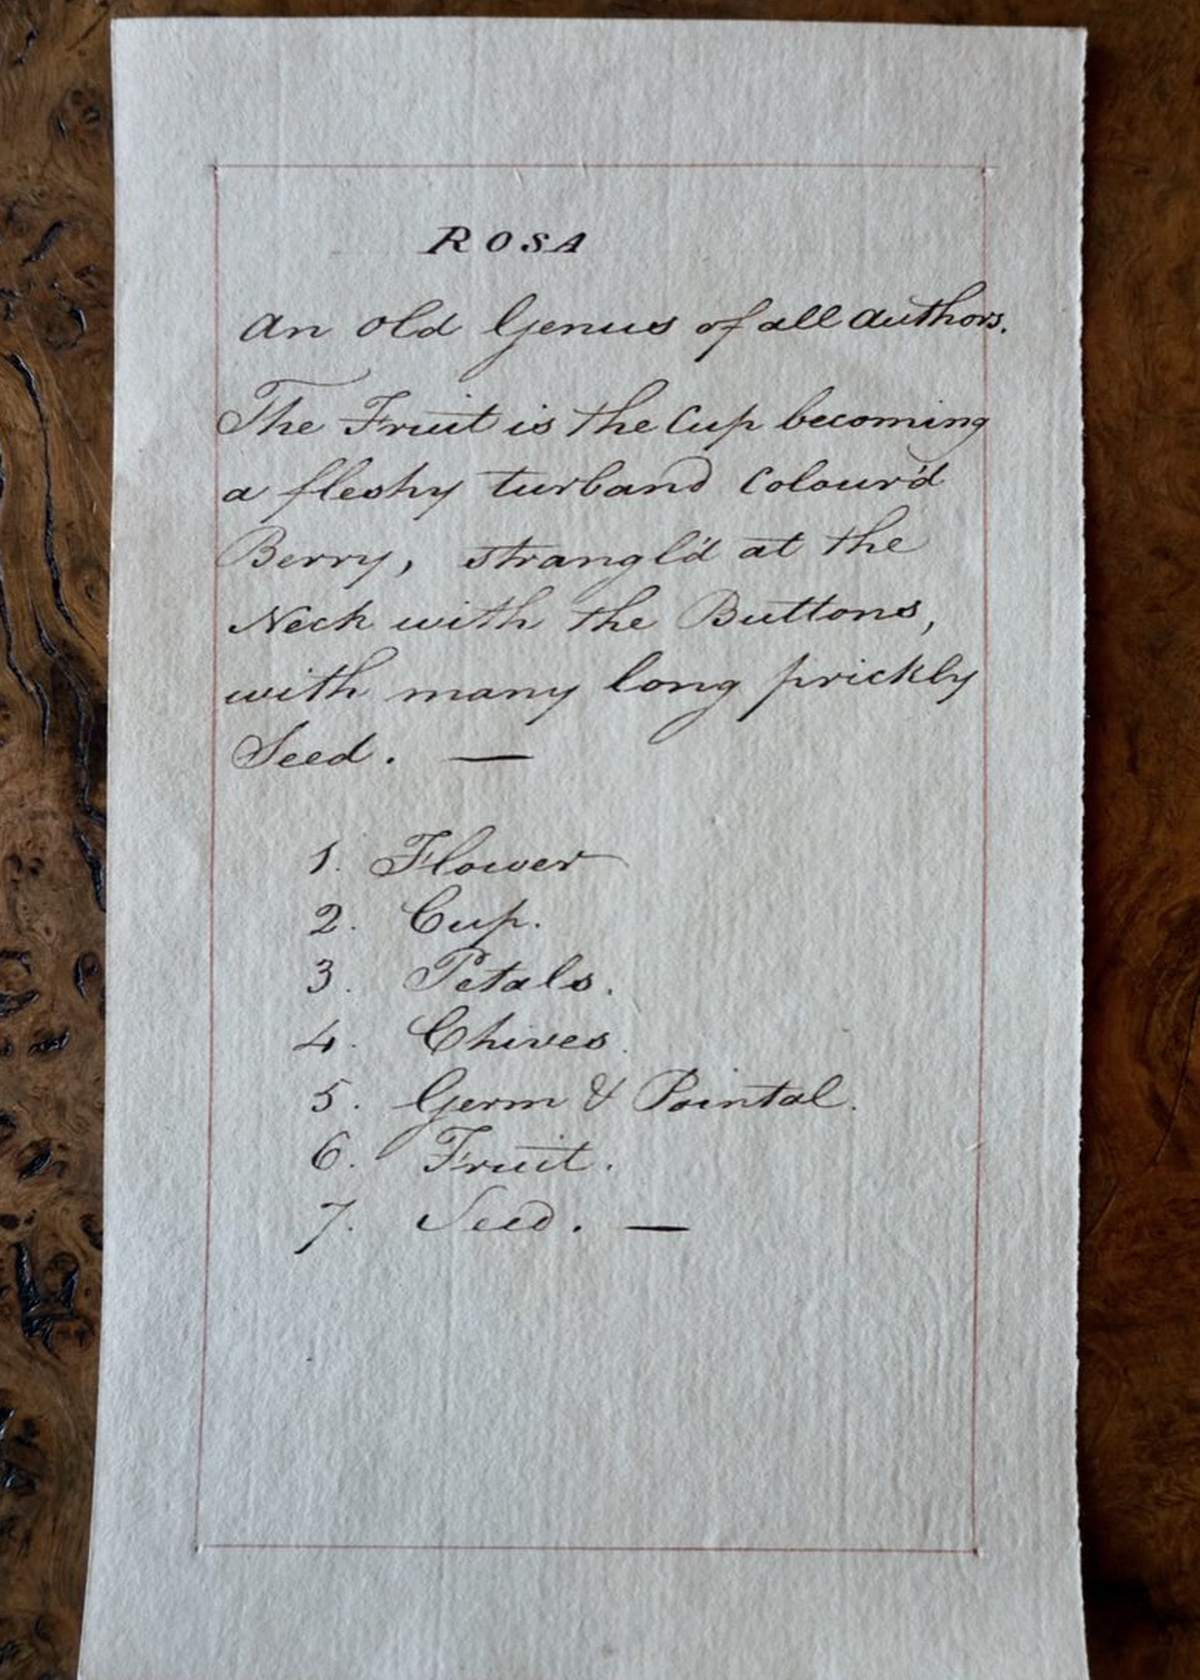 ROSA
An Old Genus of all Authors.
The Fruit is the Cup becoming
a fleshy turband Colour'd
Berry, strangl'd at the
Neck with the Buttons,
with many long prickly
Seed. —
1. Flower
2. Cup.
3. Petals.
4. Chives.
5. Germ & Pointal.
6. Fruit.
7. Seed. —